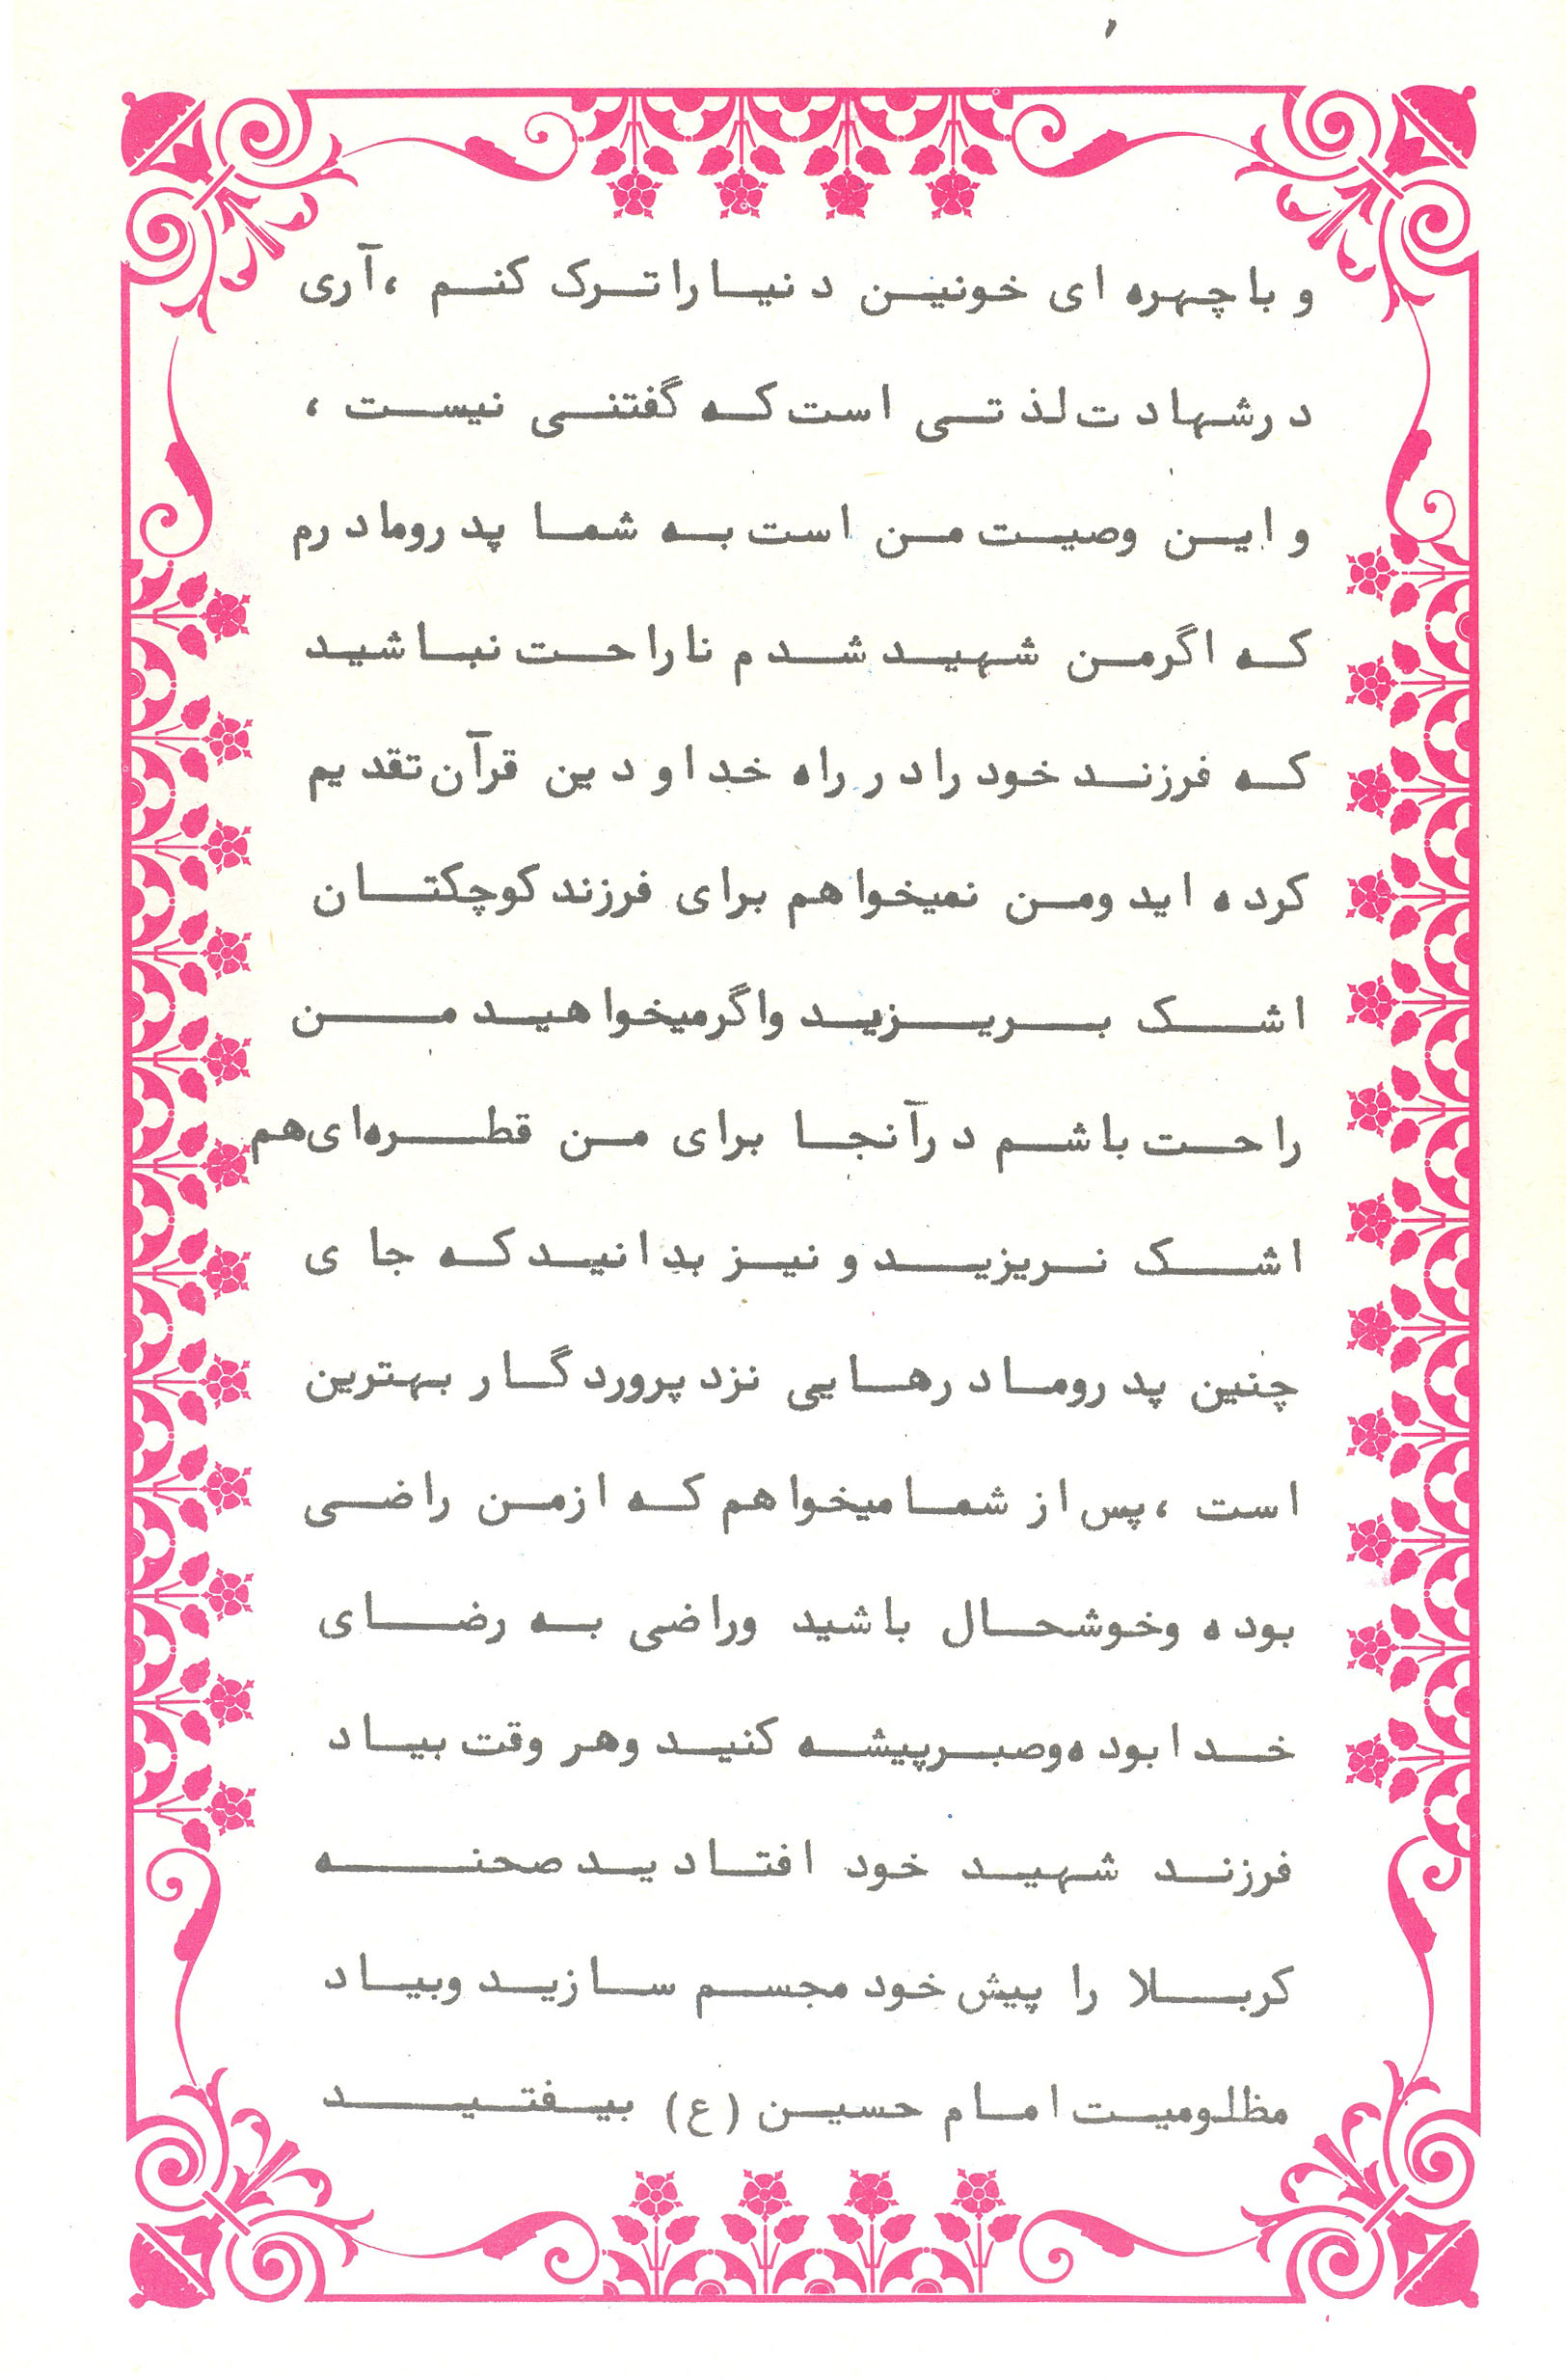 و با چهره ای خونین دنیا را ترک کنم ، آری
در شهادت لذتی است که گفتنی نیست ،
و این وصیت من است به شما پدر و مادرم
که اگر من شهید شدم ناراحت نباشید
که فرزند خود را در راه خدا و دین قرآن تقدیم
کرده اید و من نمیخواهم برای فرزند کوچکتان
اشک بریزید و اگر میخواهید من
راحت باشم در آنجا برای من قطره‌ای هم
اشک نریزید و نیز بدانید که جای
چنین پدر و مادرهایی نزد پروردگار بهترین
است ، پس از شما میخواهم که از من راضی
بوده و خوشحال باشید و راضی به رضای
خدا بوده و صبر پیشه کنید و هر وقت بیاد
فرزند شهید خود افتادید صحنه
کربلا را پیش خود مجسم سازید و بیاد
مظلومیت امام حسین (ع) بیفتید